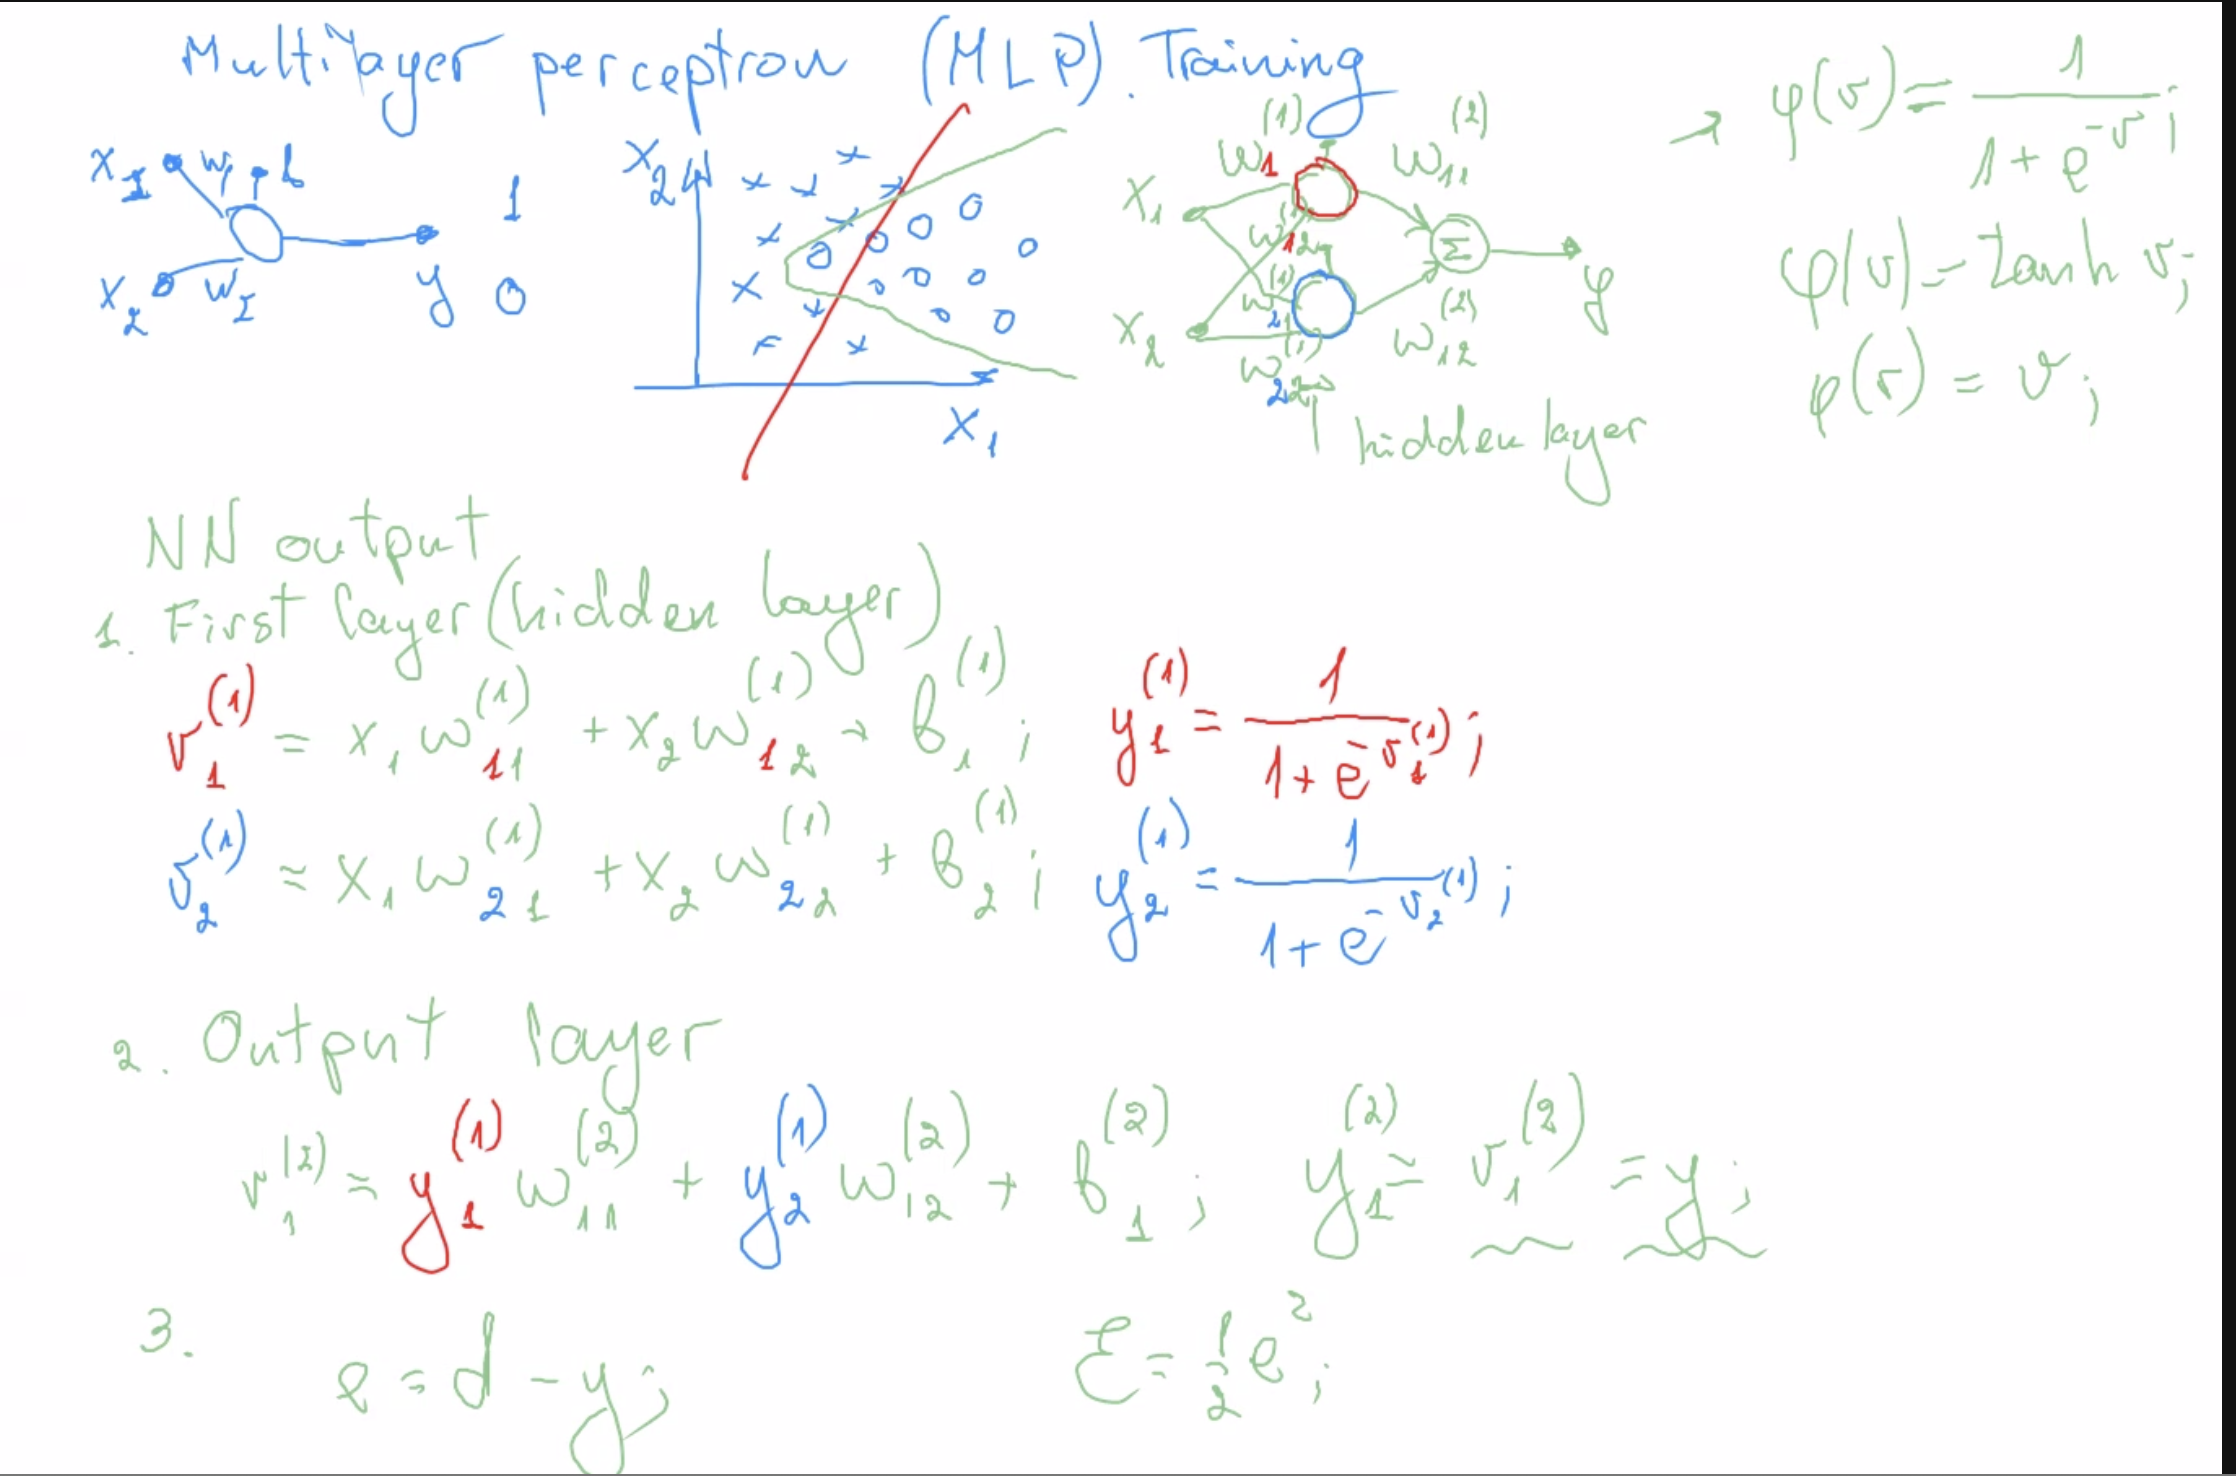 Multilayer perceptron (MLP). Training
x₁ w₁ b 1
x₂ w₂ y 0
x₂
x₁
w₁₁⁽¹⁾ w₁₁⁽²⁾
x₁ w₁₂⁽¹⁾ Σ y
x₂ w₂₁⁽¹⁾ w₁₂⁽²⁾
w₂₂⁽¹⁾
hidden layer
φ(v) = 1 / (1 + e^(-v));
φ(v) = tanh v;
φ(v) = v;
NN output
1. First layer (hidden layer)
v₁⁽¹⁾ = x₁ w₁₁⁽¹⁾ + x₂ w₁₂⁽¹⁾ + b₁⁽¹⁾; y₁⁽¹⁾ = 1 / (1 + e^(-v₁⁽¹⁾));
v₂⁽¹⁾ = x₁ w₂₁⁽¹⁾ + x₂ w₂₂⁽¹⁾ + b₂⁽¹⁾; y₂⁽¹⁾ = 1 / (1 + e^(-v₂⁽¹⁾));
2. Output layer
v₁⁽²⁾ = y₁⁽¹⁾ w₁₁⁽²⁾ + y₂⁽¹⁾ w₁₂⁽²⁾ + b₁⁽²⁾; y₁⁽²⁾ = v₁⁽²⁾ = y;
3.
e = d - y; E = 1/2 e²;